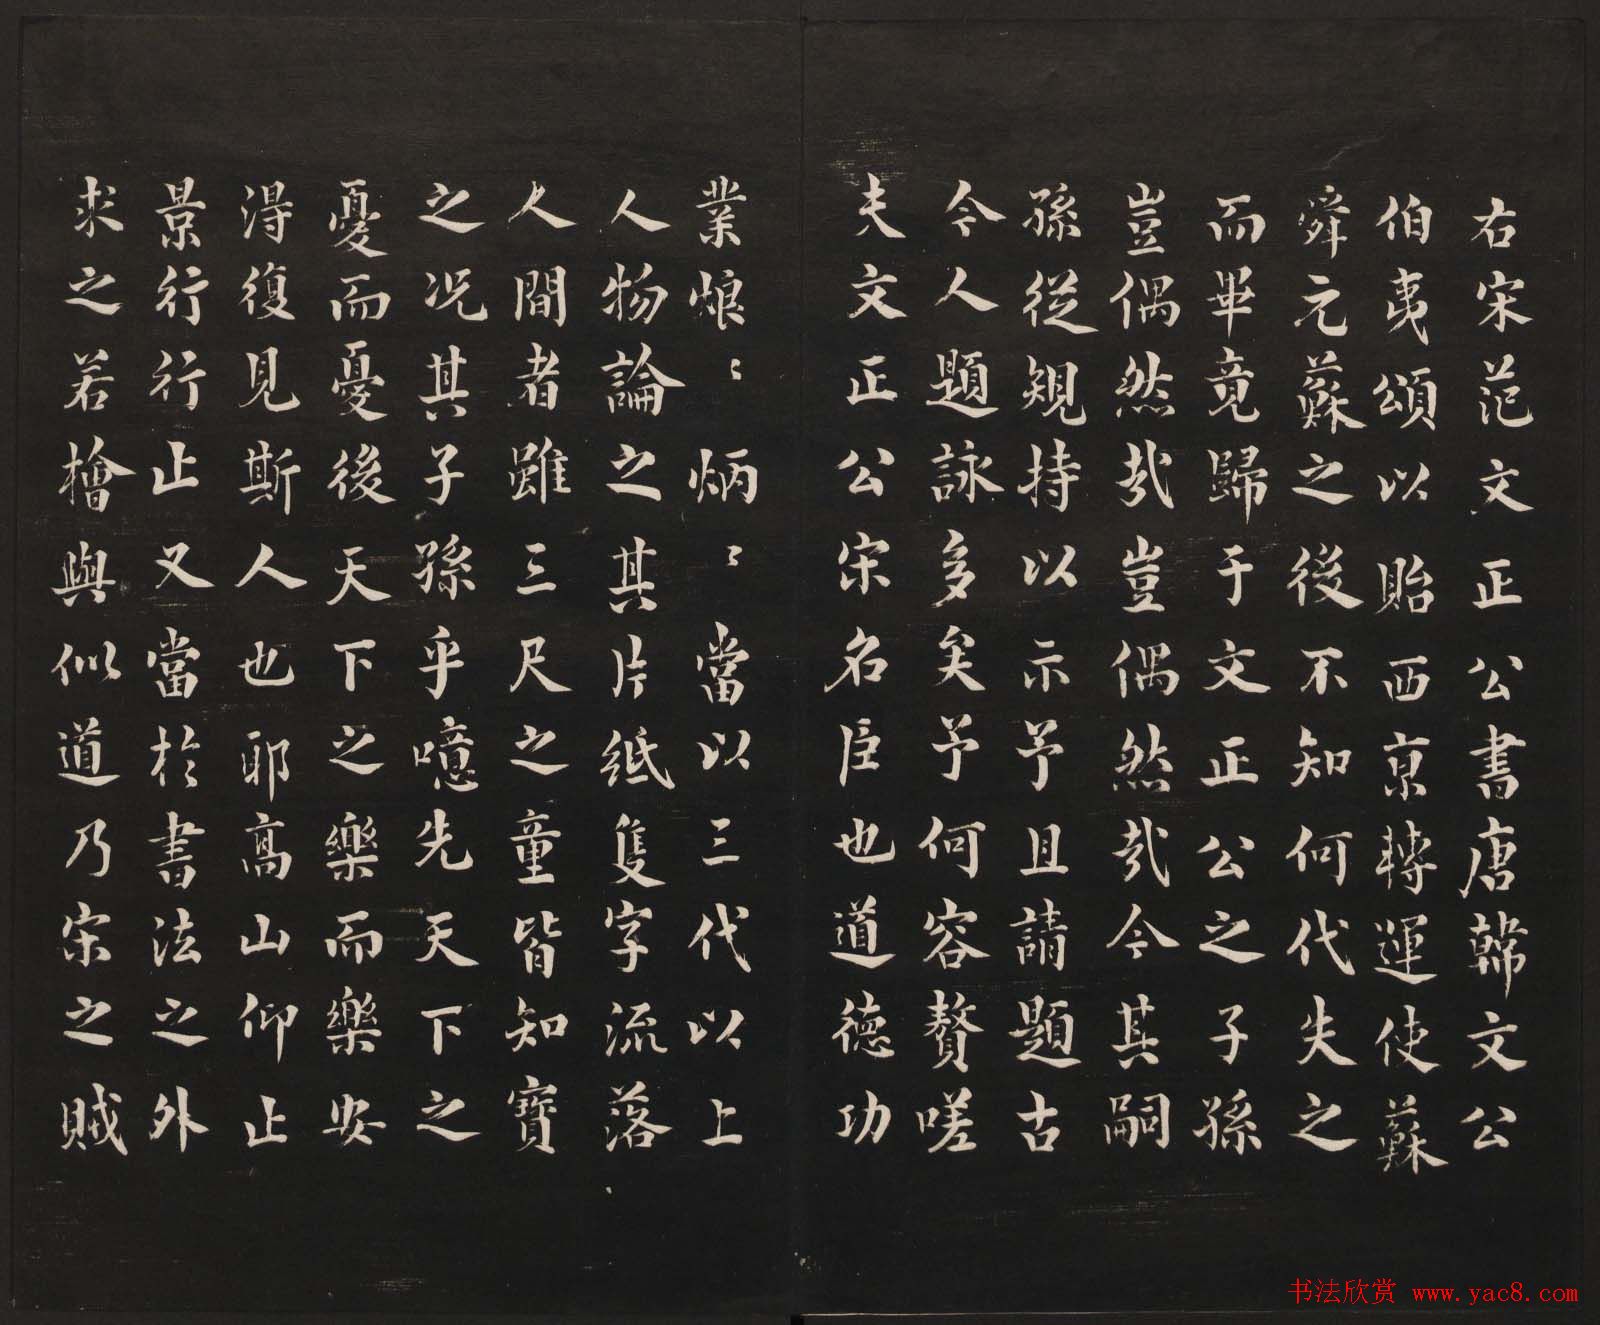 右宋范文正公書唐韓文公
伯夷頌以貽西京轉運使蘇
舜元蘇之後不知何代失之
而畢竟歸于文正公之子孫
豈偶然哉豈偶然哉今其嗣
孫從規持以示予且請題古
今人題詠多矣予何容贅嗟
夫文正公宋名臣也道德功
業烺〻炳〻當以三代以上
人物論之其片紙隻字流落
人間者雖三尺之童皆知寶
之况其子孫乎噫先天下之
憂而憂後天下之樂而樂安
得復見斯人也耶高山仰止
景行行止又當於書法之外
求之若檜與似道乃宋之賊
书法欣赏 www.yac8.com